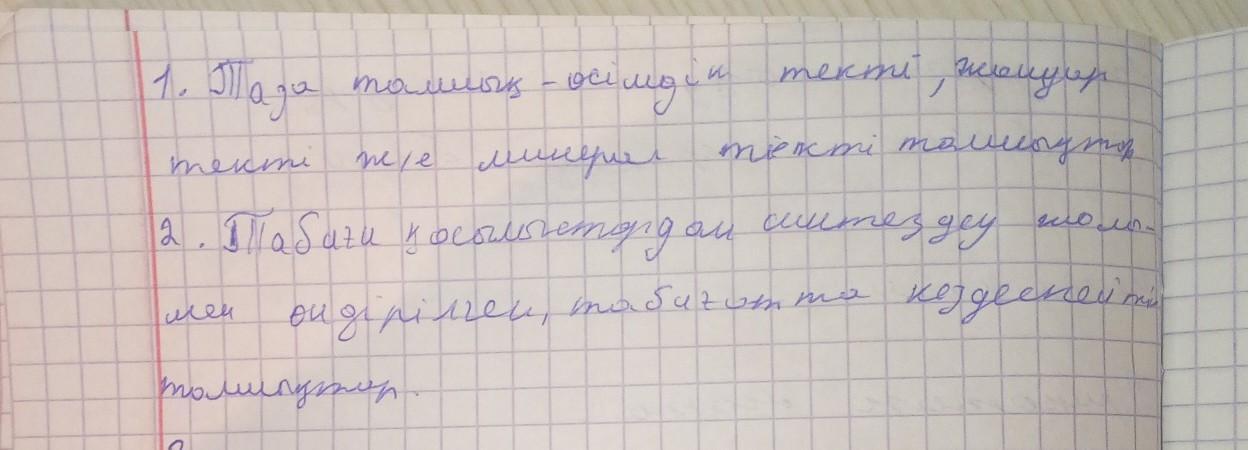 1. Таза талшық - өсімдік текті, жануар
текті ж/е минерал текті талшықтар
2. Табиғи қосылыстардан синтездеу жолы-
мен өндірілген, табиғатта кездеспейтін
талшықтар.